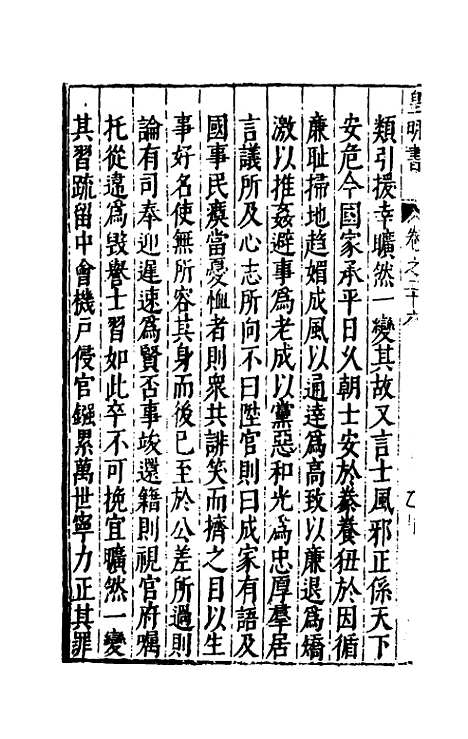 皇明書 卷之二十六
類引援幸曠然一變其故又言士風邪正係天下
安危今國家承平日久朝士安於豢養狃於因循
廉耻掃地趋媚成風以通達為高致以廉退為矯
激以推姦避事為老成以黨惡和光為忠厚羣居
言議所及心志所向不曰陞官則曰成家有語及
國事民瘼當憂恤者則衆共誹笑而擠之目以生
事好名使無所容其身而後已至於公差所過則
論有司奉迎遲速為賢否事竣還籍則視官府囑
托從違為毁譽士習如此卒不可挽宜曠然一變
其習疏留中會機戶侵官鏹累萬世寧力正其罪